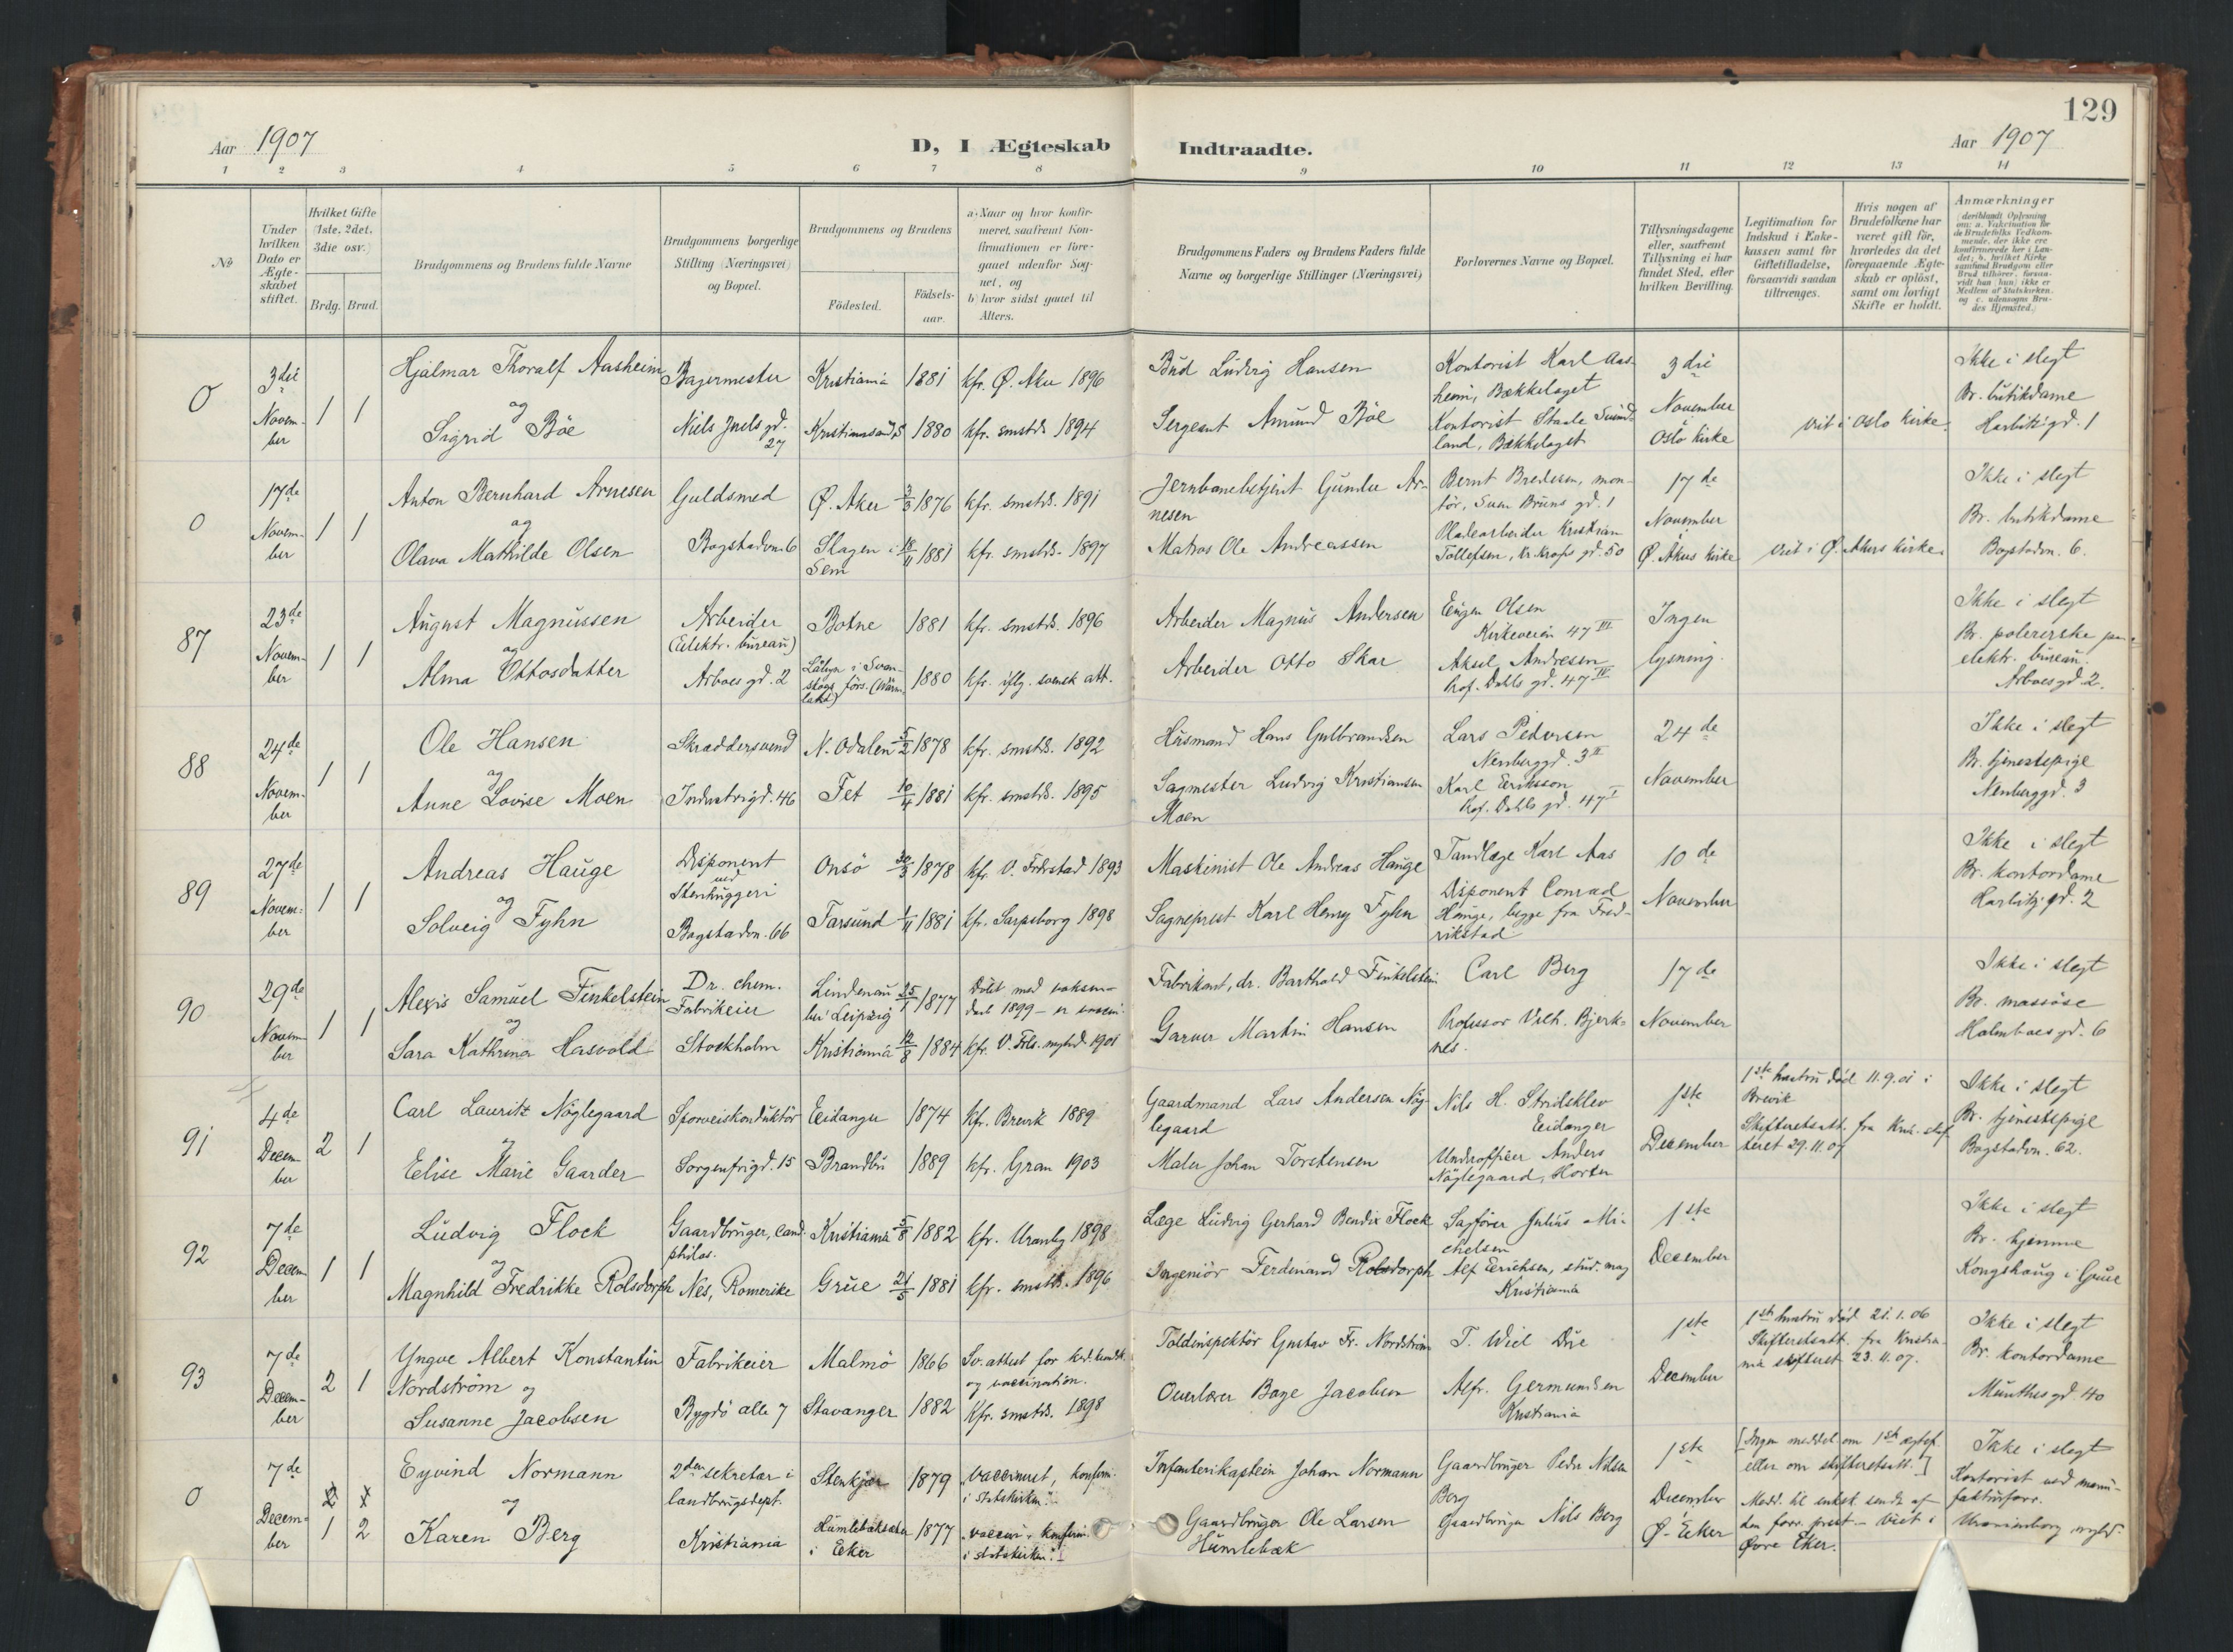 129
Aar 1907
D, I Ægteskab Indtraadte.
Aar 1907
1 2 3 4 5 6 7 8 9 10 11 12 13 14
No
Under hvilken Dato er Ægteskabet stiftet.
Hvilket Gifte (1ste, 2det, 3die osv.)
Brdg. Brud.
Brudgommens og Brudens fulde Navne
Brudgommens borgerlige Stilling (Næringsvei) og Bopæl.
Brudgommens og Brudens
Födested.
Födsels-aar.
a) Naar og hvor konfirmeret, saafremt Konfirmationen er foregaaet udenfor Sognet, og
b) hvor sidst gaaet til Alters.
Brudgommens Faders og Brudens Faders fulde Navne og borgerlige Stillinger (Næringsvei)
Forlovernes Navne og Bopæl.
Tillysningsdagene eller, saafremt Tillysning ei har fundet Sted, efter hvilken Bevilling.
Legitimation for Indskud i Enkekassen samt for Giftetilladelse, forsaavidt saadan tiltrænges.
Hvis nogen af Brudefolkene har været gift för, hvorledes da det foregaaende Ægteskab er oplöst, samt om lovligt Skifte er holdt.
Anmærkninger (deriblandt Oplysning om: a. Vakcination for de Brudefolks Vedkommende, der ikke ere konfirmerede her i Landet; b. hvilket Kirkesamfund Brudgom eller Brud tilhörer, forsaavidt han (hun) ikke er Medlem af Statskirken, og c. udensogns Brudes Hjemsted.)
0
3die November
1 1
Hjalmar Thoralf Aasheim
og
Sigrid Böe
Bagermester
Niels Juels gd. 27
Kristiania 1881 kfr. Ø. Aker 1896
Kristianssand S 1880 kfr. smstds 1894
Ludvig Hansen
Sergeant Amund Böe
Kontorist Karl Aasheim, Bækkelaget
Kontorist Staale Svindland, Bækkelaget
3die November
Oslo Kirke
viet i Oslo kirke.
Ikke i slegt
Br. butikdame
Harbitz gd. 1
0
17de November
1 1
Anton Bernhard Arnesen
og
Olava Mathilde Olsen
Guldsmed
Bogstadvn. 6
Ø. Aker 3/3 1876 kfr. smstds. 1891
Slagen i Sem 18/11 1881 kfr. smstds. 1897
Jernbanebetjent Gunder Arnesen
Matros Ole Andreassen
Bernt Bredesen, montör, Sven Bruns gd. 1
Kristian Tollefsen, gd. 50
17de November
Ø. Akers kirke
viet i Ø. Akers kirke.
Ikke i slegt
Br. butikdame
Bogstadvn. 6.
87
23de November
1 1
August Magnussen
og
Alma Ottosdatter
Arbeider
(Elektr. bureau)
Arboes gd. 2
Botne 1881 kfr. smstds. 1896
i Svanskogs förs. (Wärmland) 1880 kfr. iflg. svensk att.
Arbeider Magnus Andersen
Arbeider Otto Skar
Eugen Olsen
Kirkeveien 47 III
Aksel Andresen
Prof. Dahls gd. 47 IV
Ingen lysning.
Ikke i slegt
Br. polererske paa elektr. bureau.
Arboes gd. 2.
88
24de November
1 1
Ole Hansen
og
Anne Lovise Moen
Skræddersvend
Industrigd. 46
N. Odalen 5/2 1878 kfr. smstds. 1892
Fet 10/4 1881 kfr. smstds. 1895
Husmand Hans Gulbrandsen
Sagmester Ludvig Kristiansen Moen
Lars Pedersen
Neuberggd. 3 II
Karl Eriksson
Prof. Dahls gd. 47 I
24de November
Ikke i slegt
Br. tjenestepige
Neuberggd. 3
89
27de November
1 1
Andreas Hauge
og
Solveig Fyhn
Disponent ved Stenhuggeri
Bogstadvn. 66
Onsö 30/3 1878 kfr. V. Fredrstad 1893
Farsund 1/11 1881 kfr. Sarpsborg 1898
Maskinist Ole Andreas Hauge
Sogneprest Karl Henry Fyhn
Tandlæge Karl Aas
Disponent Conrad Hauge, begge fra Fredrikstad
10de November
Ikke i slegt
Br. kontordame
Harbitz gd. 2
90
29de November
1 1
Alexis Samuel Finkelstein
og
Sara Kathrina Hasvold
Dr. chem.
Fabrikeier
Stockholm
Lindenau bei Leipzig 25/1 1877 Döbt med voksendaab 1899 – er
Kristiania 12/8 1884 kfr. V. Frls. myhd. 1901
Fabrikant, dr. Barthold Finkelstein
Garver Martin Hansen
Carl Berg
Professor Vilh. Bjerknes.
17de November
Ikke i slegt
Br. massöse
Holmboes gd. 6
91
4de December
2 1
Carl Lauritz Nöglegaard
og
Elise Marie Gaarder
Sporveiskonduktör
Sorgenfrigd. 15
Eidanger 1874 kfr. Brevik 1889
Brandbu 1889 kfr. Gran 1903
Gaardmand Lars Andersen Nöglegaard
Maler Johan Torstensen
Nils H. Stridsklev
Eidanger
Underofficer Anders Nöglegaard, Horten
1ste December
1ste hustru död 11.9.01 i Brevik
Skifteretsatt. fra Kra. skifteret 29.11.07
Ikke i slegt
Br. tjenestepige
Bogstadvn. 62.
92
7de December
1 1
Ludvig Flock
og
Magnhild Fredrikke Rolsdorph
Gaardbruger, cand. philos.
Nes, Romerike
Kristiania 5/8 1882 kfr. Uranbg 1898
Grue 21/5 1881 kfr. smstds. 1896
Læge Ludvig Gerhard Bendix Flock
Ingeniör Ferdinand Rolsdorph
Sagförer Julius Michelsen
Alf Erichsen, stud. mag
Kristiania
1ste December
Ikke i slegt
Br. hjemme
Kongshaug i Grue
93
7de December
2 1
Yngve Albert Konstantin Nordström og
Susanne Jacobsen
Fabrikeier
Bygdö alle 7
Malmö 1866 Sv. attest for krd.kundsk. og vaccination.
Stavanger 1882 Kfr. smstds. 1898
Toldinspektör Gustav Fr. Nordström
Overlærer Boye Jacobsen
T. Wiel Due
Alfr. Germundsen
Kristiania
1ste December
1ste hustru död 21.1.06
Skifteretsatt. fra Kristiania skifteret 23.11.07.
Ikke i slegt
Br. kontordame
Munthes gd. 40
0
7de December
1 2
Eyvind Normann
og
Karen Berg
2den sekretær i landbrugsdept.
Kristiania
Stenkjær 1879 "vaccineret, konfirm. i statskirken."
Humlebæksæter i Eker 1877 "vaccin. konfirm. i statskirken."
Infanterikaptein Johan Normann
Gaardbruger Ole Larsen Humlebæk
Gaardbruger Peder Nilsen Berg
Gaardbruger Nils Berg
1ste December
Ø. Eker
[Ingen meddel. om 1ste ægtesk. eller om skifteretsatt.!]
Medd. til enkek. sendt af den forr. prest – Viet i Øvre Eker.
Ikke i slegt
Kontorist ved manufakturforr.
Uranienborg myhd.